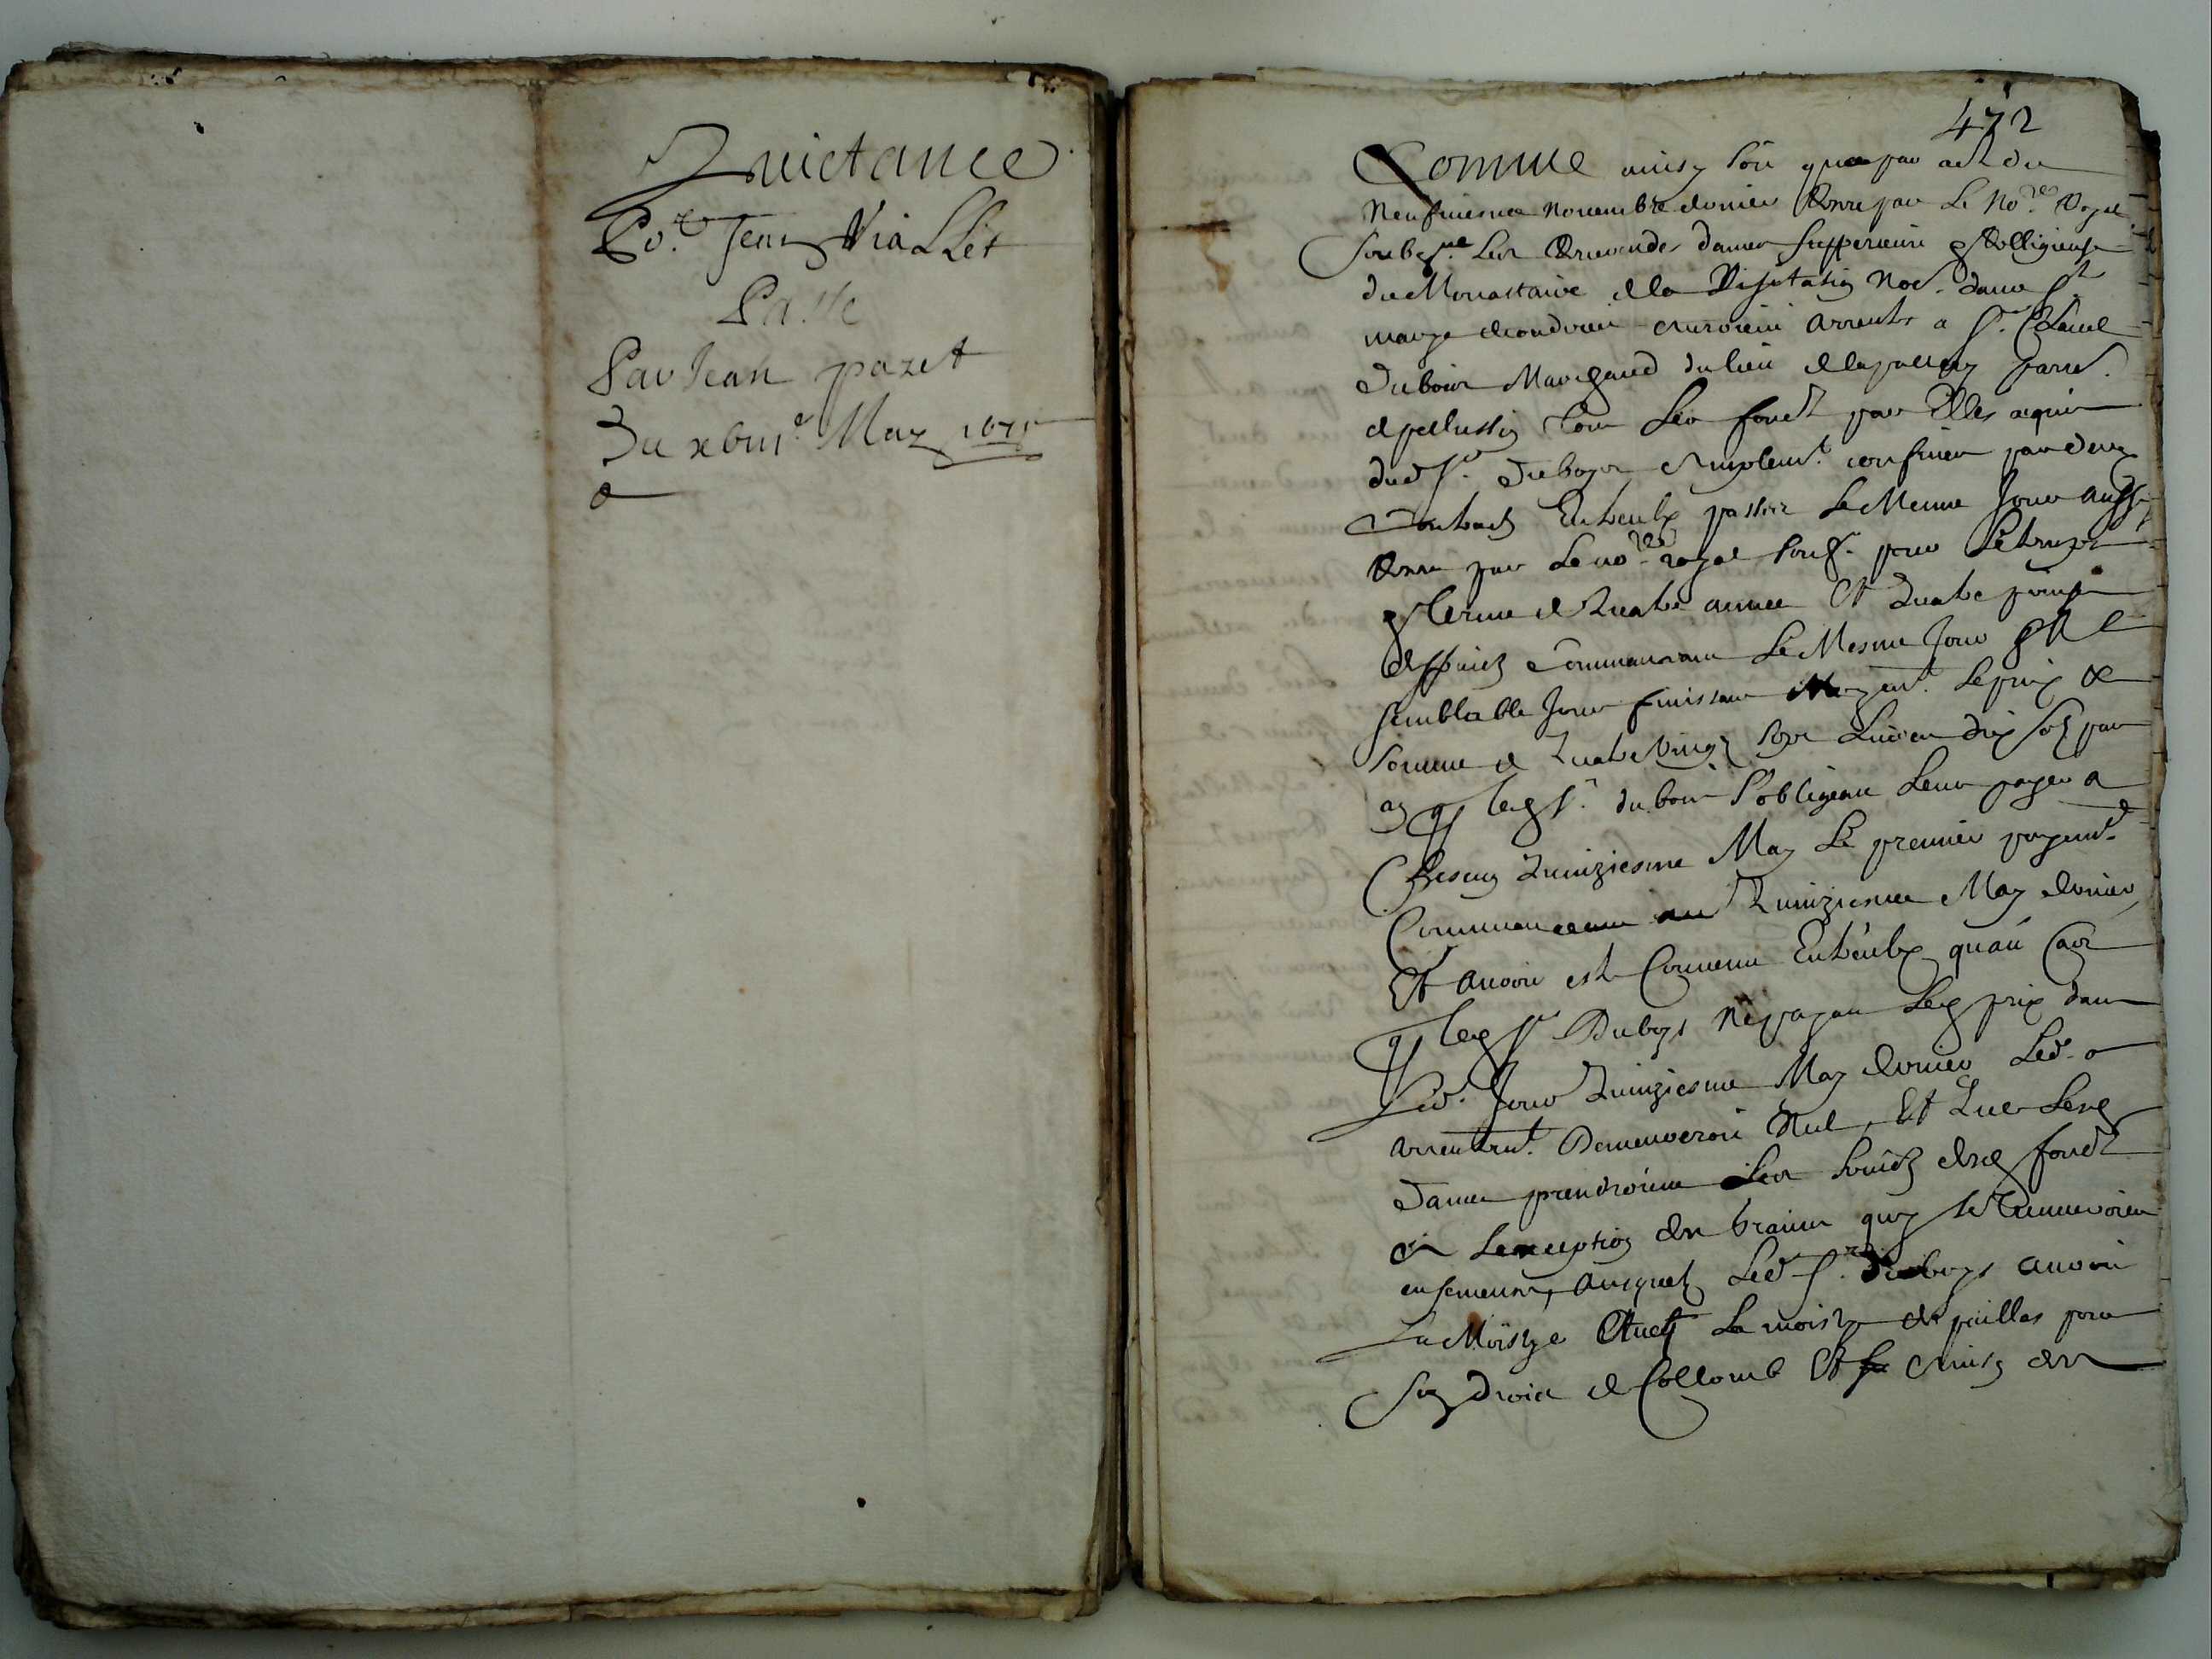 Quictance
Po.r Jean Viallet
Passé
Par Jean pazet
Du xbm.e May 1671
472
Comme ainsy soit que par act du
Neufviesme novembre dernier Receu par Le No.re Royal
soubsne. Les Reverendes dames supperieure & Relligieuse
du Monastaire de la Visitation Nod. dame Ste
marye de condrieu auroient arrenté a sr. Claude
Dubois Marchand du lieu de parr.
de pellussin Tous Les fondz par Elles acquis
dud sr. Duboys Amplemt. confinés par deux
Contractz Entreulx passés Le Mesme Jour aussy
Receu par Le no.re royal soubs. pour Le temps
& terme de Quatre année Et Quatre prinse
de fruictz Commensant Le Mesme Jour Et a
semblable Jour finissant Moyent. Le prix &
somme de Quatre Vingtz sept Livres dix solz par
an q. led sr. dubois s'obligeroit Leur payer a
Chescun Quinziesme May Le premier payemt.
Commenceant au Quinziesme May dernier
Et auroit esté Convenu Entreulx qu'au Cas
q. led sr Duboys ne payait Led prix dans
Led. Jour Quinziesme May dernier Led.
arrentemt. Demeureroit Nul, Et Que Lesd
dames prendroient Les fruictz desd fondz
a Lexeption des braines quy se treuveroient
ensemencés, Ausquelz Led sr. duboys auroit
La Moistye Avec La moistye des pailles pour
son droict de Collomb Et fruictz des